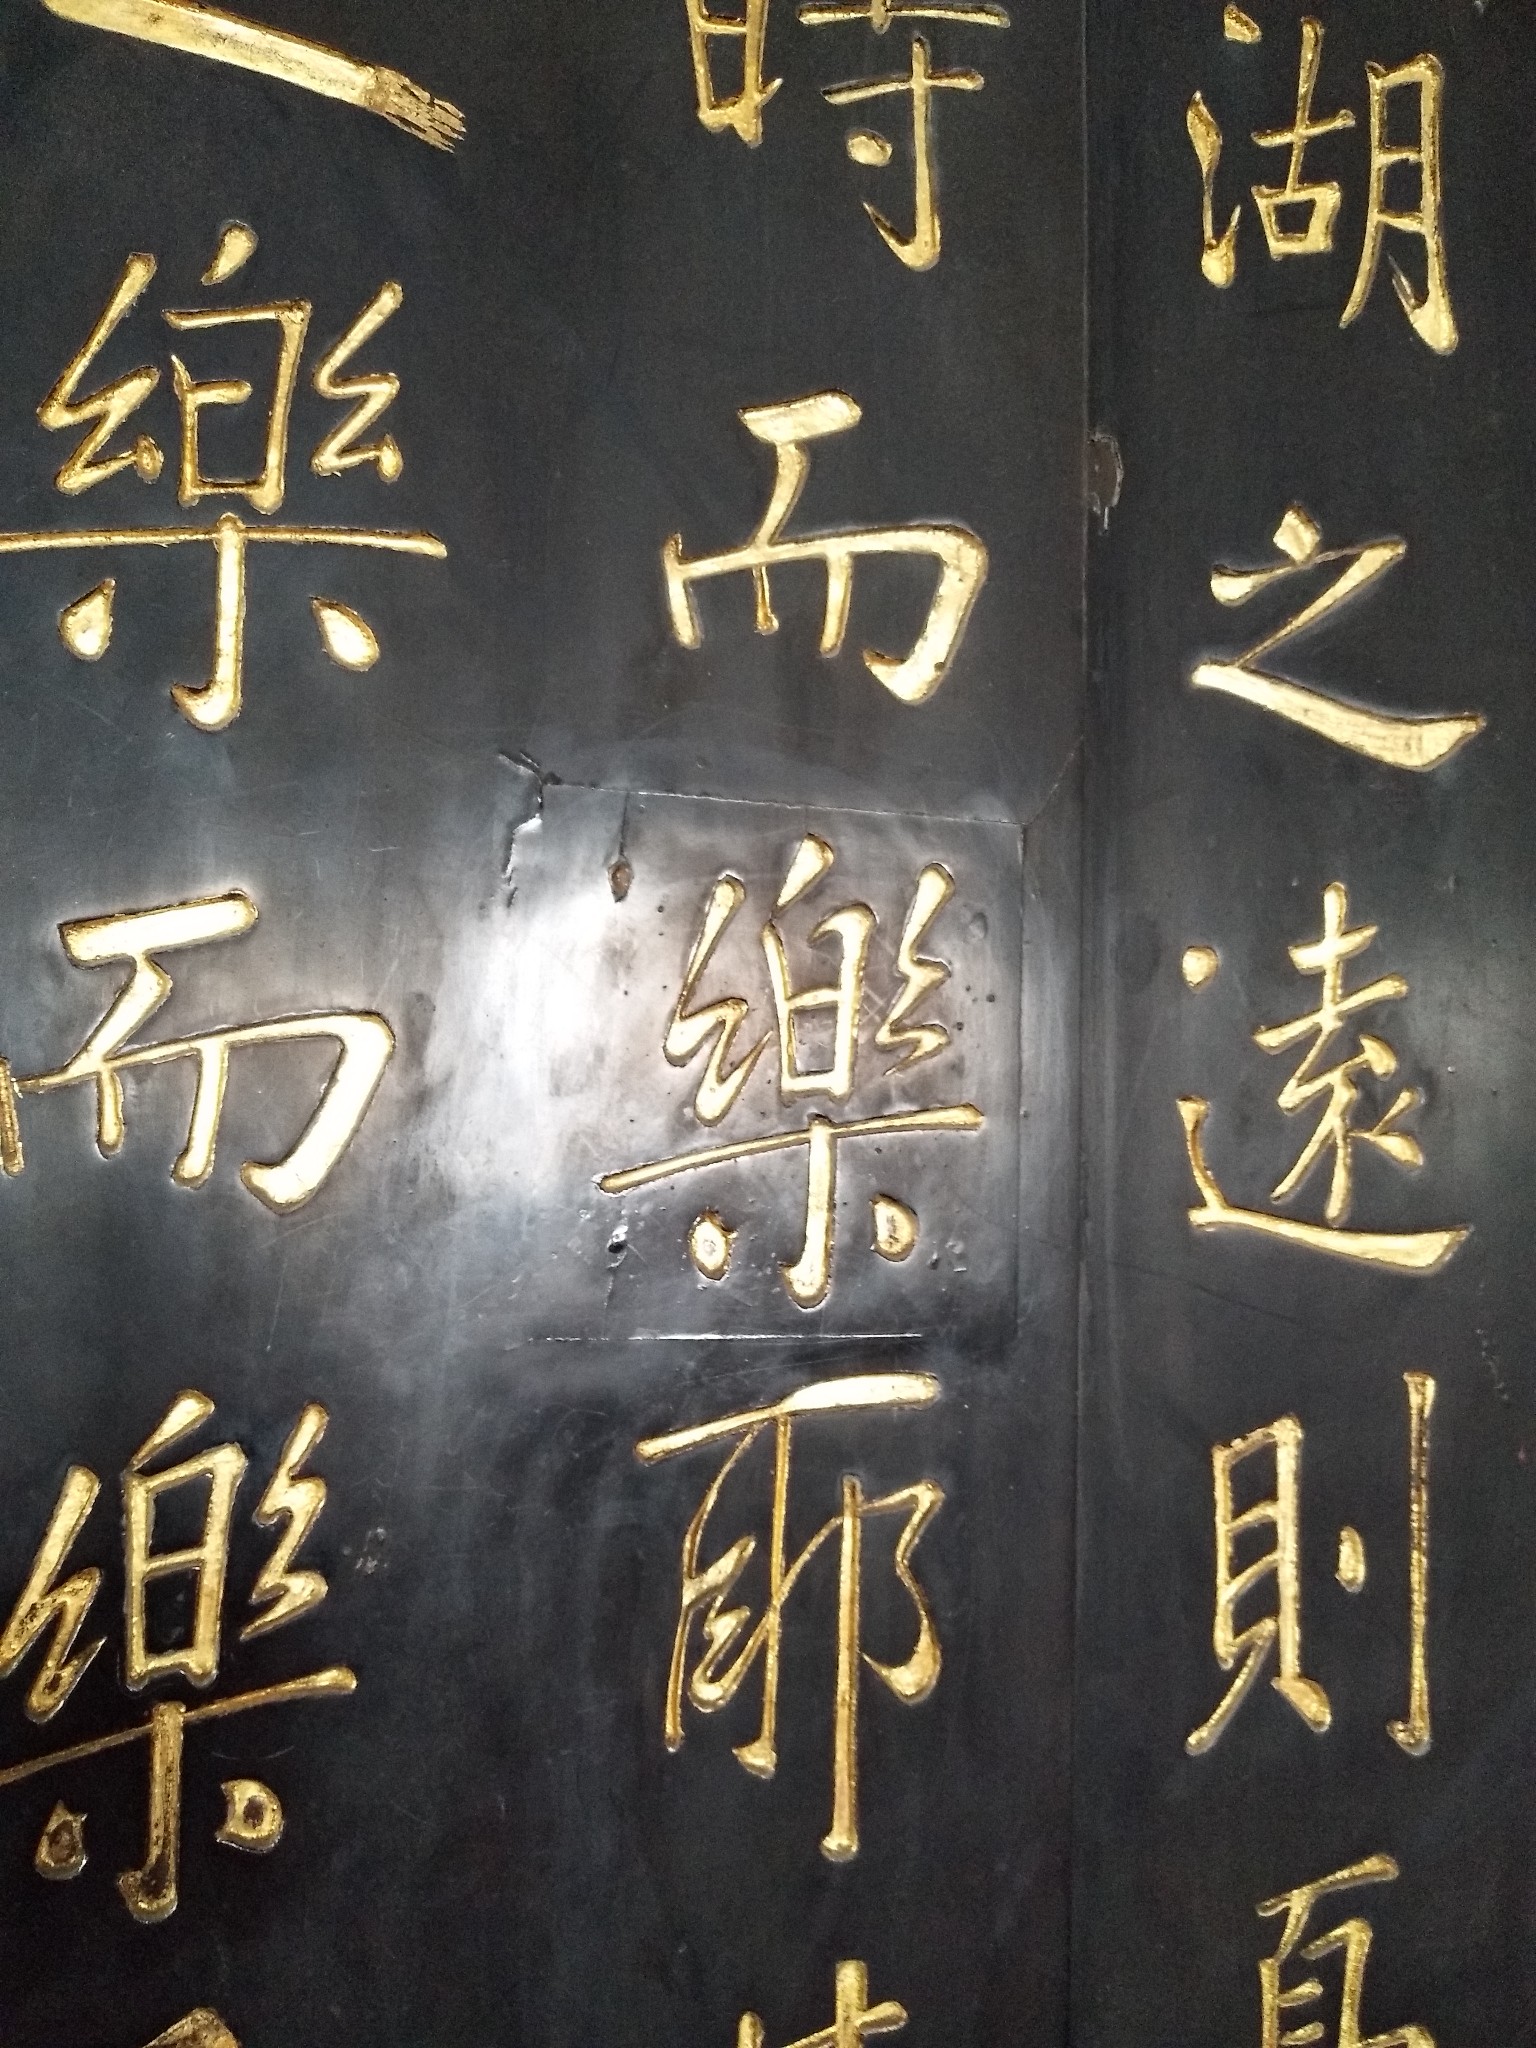 湖之遠則
時而樂耶
樂而樂